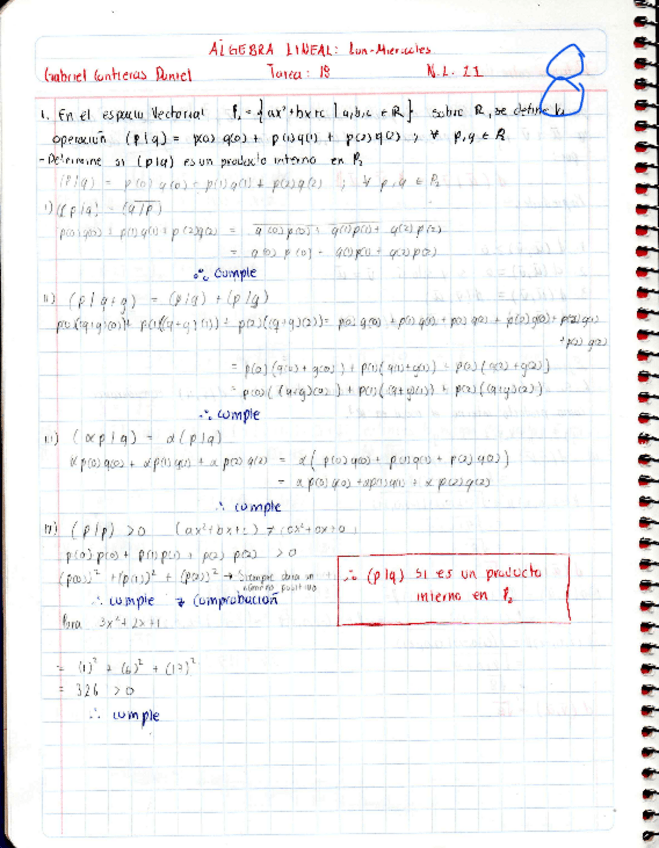 ALGEBRA LINEAL: Lun-Miercoles
Gabriel Contreras Daniel Tarea: 18 N.L. 11
8
1. En el espacio Vectorial P₂ = {ax²+bx+c | a,b,c ∈ R} sobre R, se define la
operación (p|q) = p(0) q(0) + p(1)q(1) + p(2)q(2) ; ∀ p,q ∈ R
- Determine si (p|q) es un producto interno en P₂
(p|q) = p(0) q(0) + p(1)q(1) + p(2)q(2) ; ∀ p,q ∈ P₂
i) (p|q) = (q|p)
p(0)q(0) + p(1)q(1) + p(2)q(2) = q(0)p(0) + q(1)p(1) + q(2)p(2)
= q(0) p(0) + q(1)p(1) + q(2)p(2)
∴ Cumple
ii) (p|q+g) = (p|q) + (p|g)
= p(0)(q(0)+g(0)) + p(1)(q(1)+g(1)) + p(2)(q(2)+g(2))
= p(0)((q+g)(0)) + p(1)((q+g)(1)) + p(2)((q+g)(2))
∴ cumple
iii) (αp|q) = α(p|q)
αp(0)q(0) + αp(1)q(1) + αp(2)q(2) = α(p(0)q(0) + p(1)q(1) + p(2)q(2))
= αp(0)q(0) + αp(1)q(1) + αp(2)q(2)
∴ cumple
(p|p) > 0 (ax²+bx+c) ≠ (0x²+0x+0)
p(0)p(0) + p(1)p(1) + p(2)p(2) > 0
(p(0))² + (p(1))² + (p(2))² → Siempre dara un número positivo
∴ cumple → Comprobación
∴ (p|q) si es un producto
interno en P₂
Para 3x²+2x+1
= (1)² + (6)² + (17)²
= 326 > 0
∴ cumple